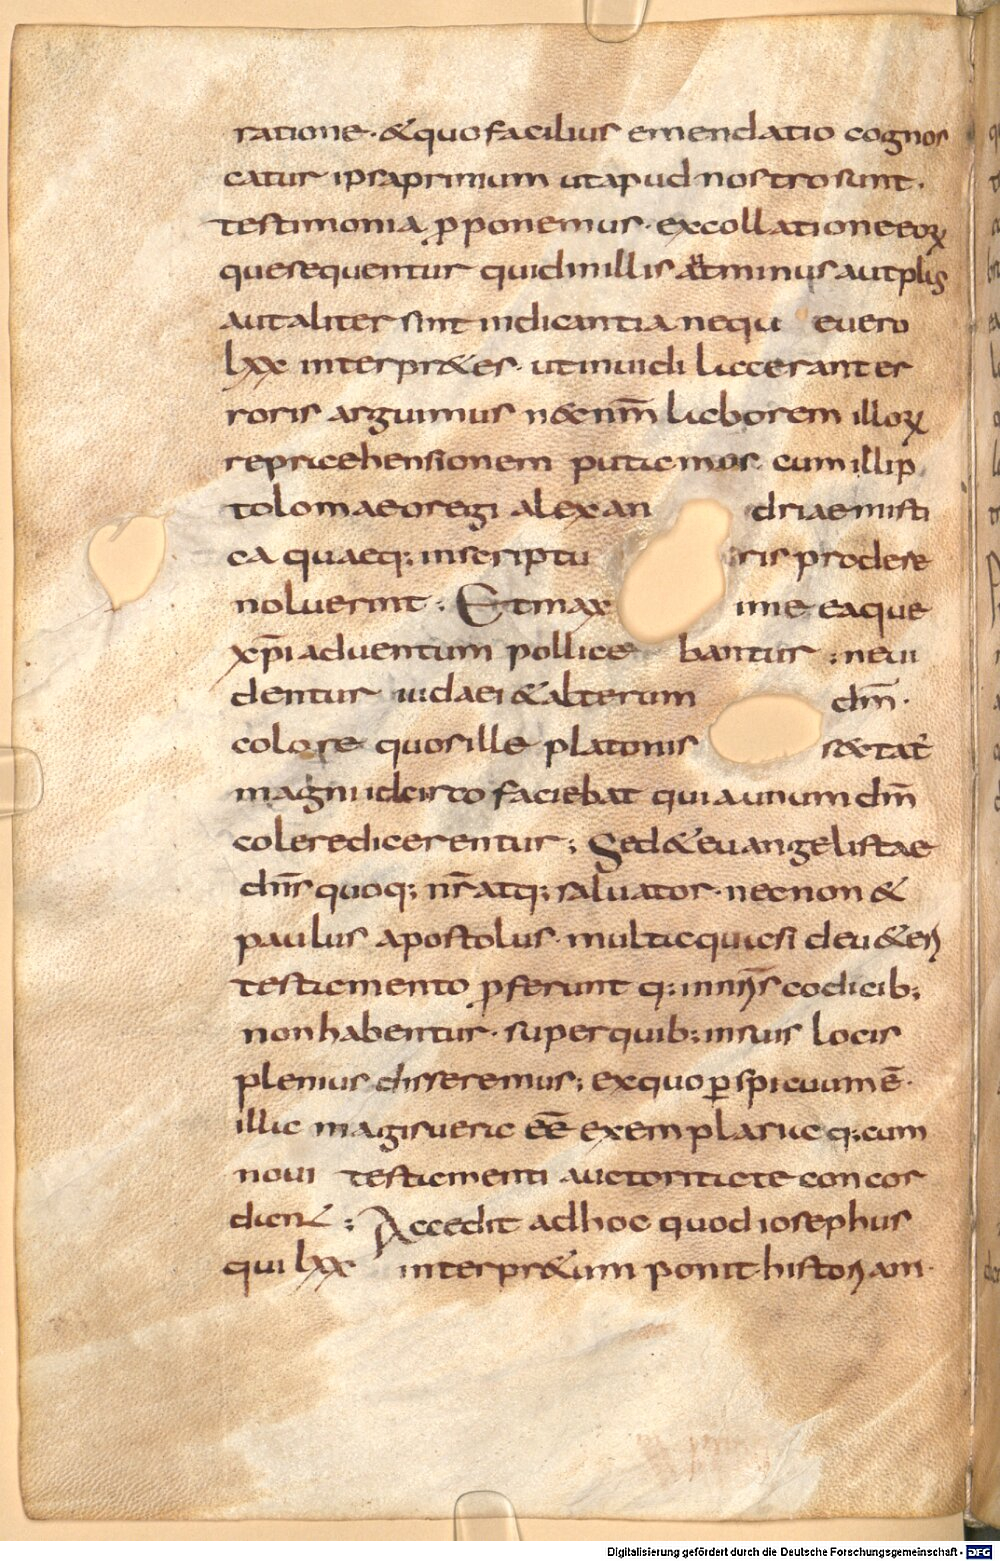 ratione · & quo facilius emendatio cognos
catur ipsa primum ut apud nostro sunt ·
testimonia p̱ponemus · ex collatione eoꝝ
que sequentur quid in illis aut minus aut plus
aut aliter sint indicantia nequ e uero
lxx interpr&es · ut inuidi laceranter
roris arguimus n& enim̅ laborem illoꝝ
repraehensionem putamus cum illi p
tolomaeo regi alexan driae misti
ca quaeq; inscriptu ris prodese
noluerint · Et max ime ea que
xp̅i aduentum pollice bantur ; ne ui
dentur iudaei & alterum dm̅ ·
colore quos ille platonis sectat̉
magni idcirco faciebat quia unum dm̅
colere dicerentur ; Sed & euangelistae
dn̅s quoq; nr̅ atq; saluator · nec non &
paulus apostolus · multa quasi de u&eri
testamento ꝓferunt q; in nr̅is codicib;
non habentur · super quib; in suis locis
plenius disseremus ; ex quo ꝑspicuum ē ·
illa magis uera eē exemplaria q; cum
noui testamenti auctoritate concor
dant ; Accedit ad hoc quod iosephus
qui lxx interpr&um ponit historiam ·
Digitalisierung gefördert durch die Deutsche Forschungsgemeinschaft - DFG